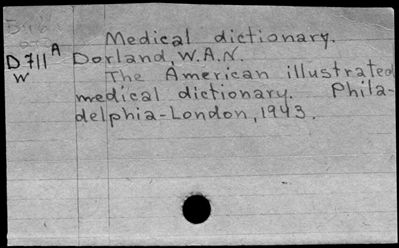 Medical dictionary.
D711A Dorland, W.A.N.
W The American illustrated
medical dictionary. Phila-
delphia-London, 1943.